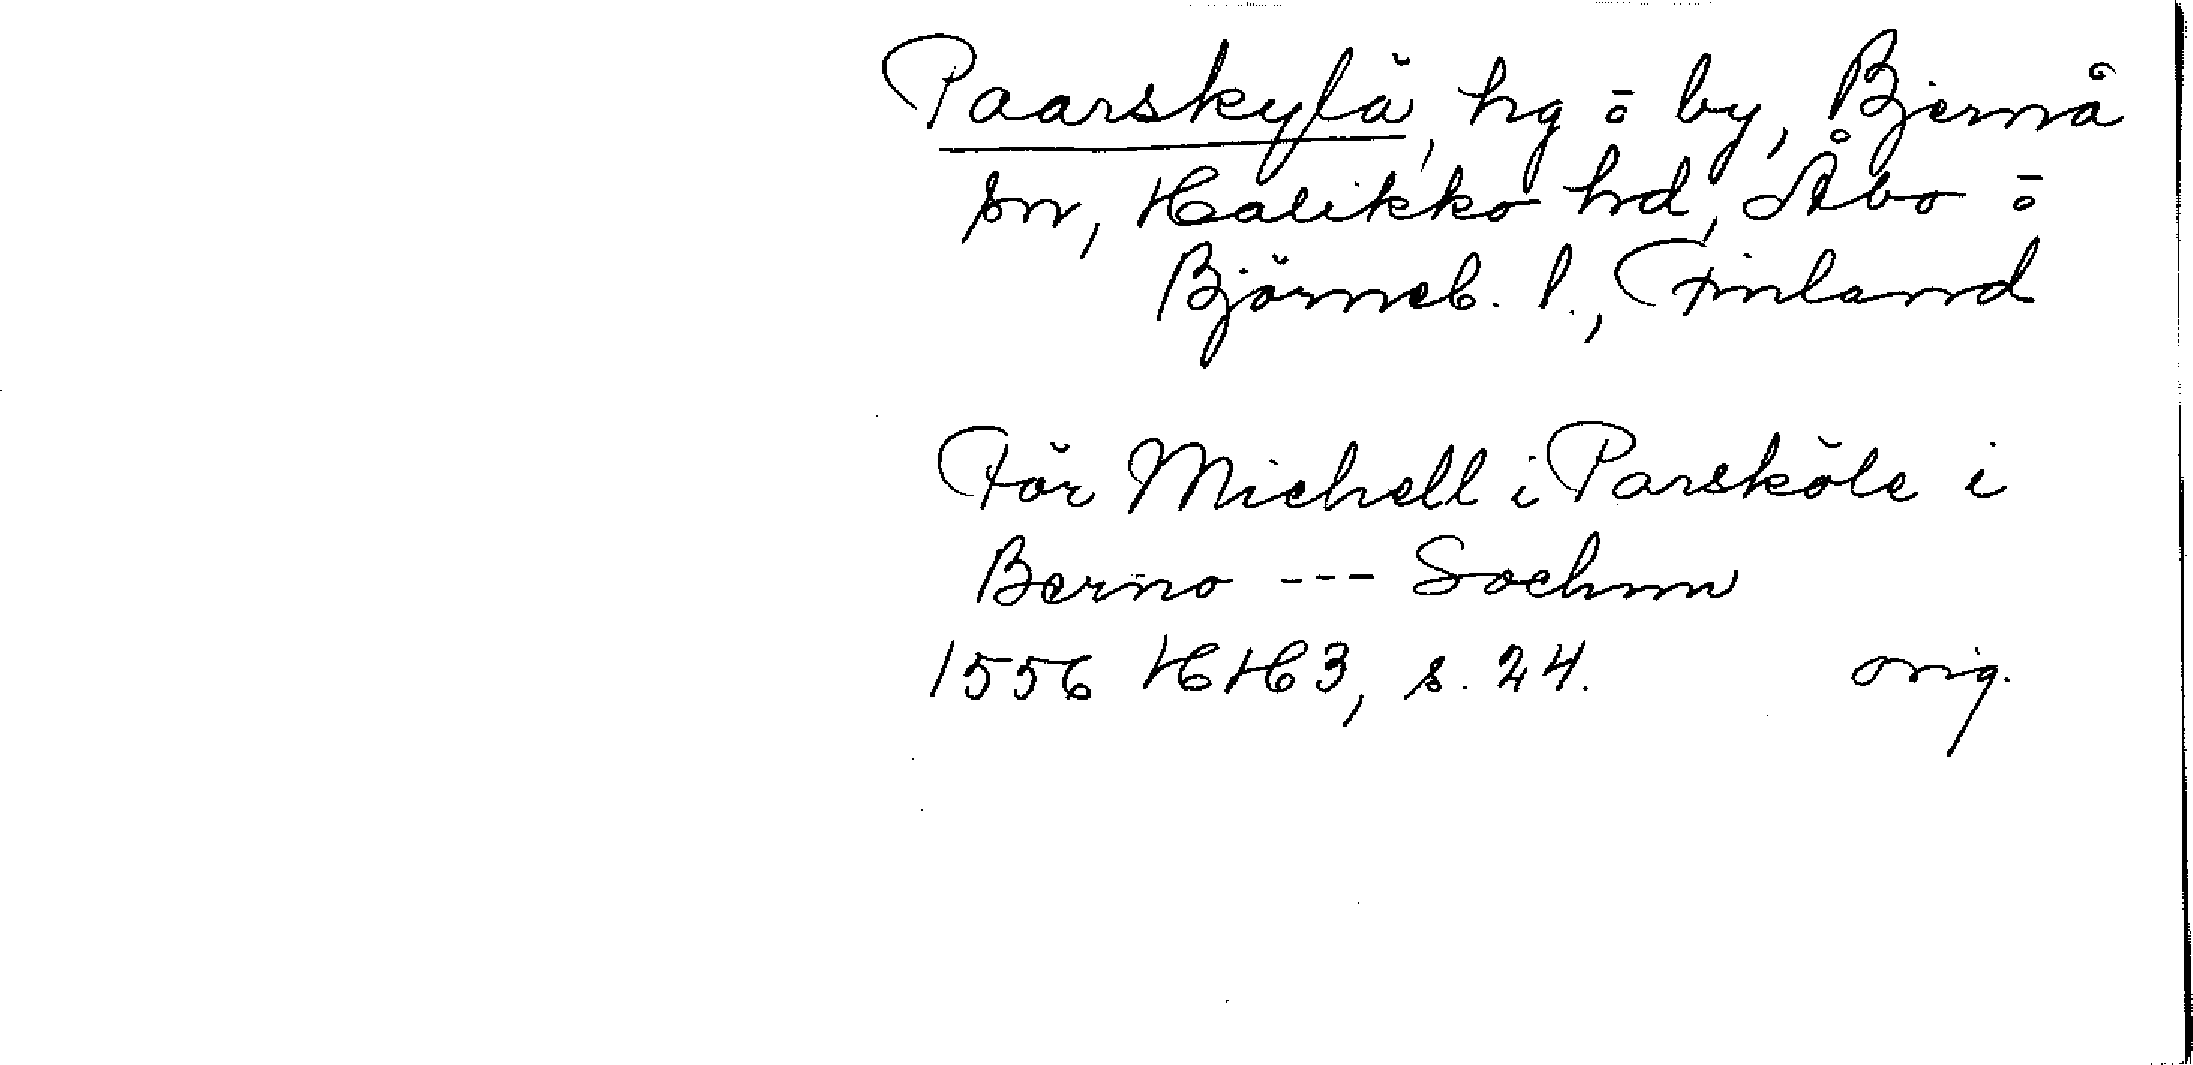 Paarskylä, hg o by, Bjernå
sn, Halikko hd, Åbo o
Björneb. l., Finland
För Michell i Parsköle i
Berno --- Sochnn
1556 HH3, s. 24. orig.